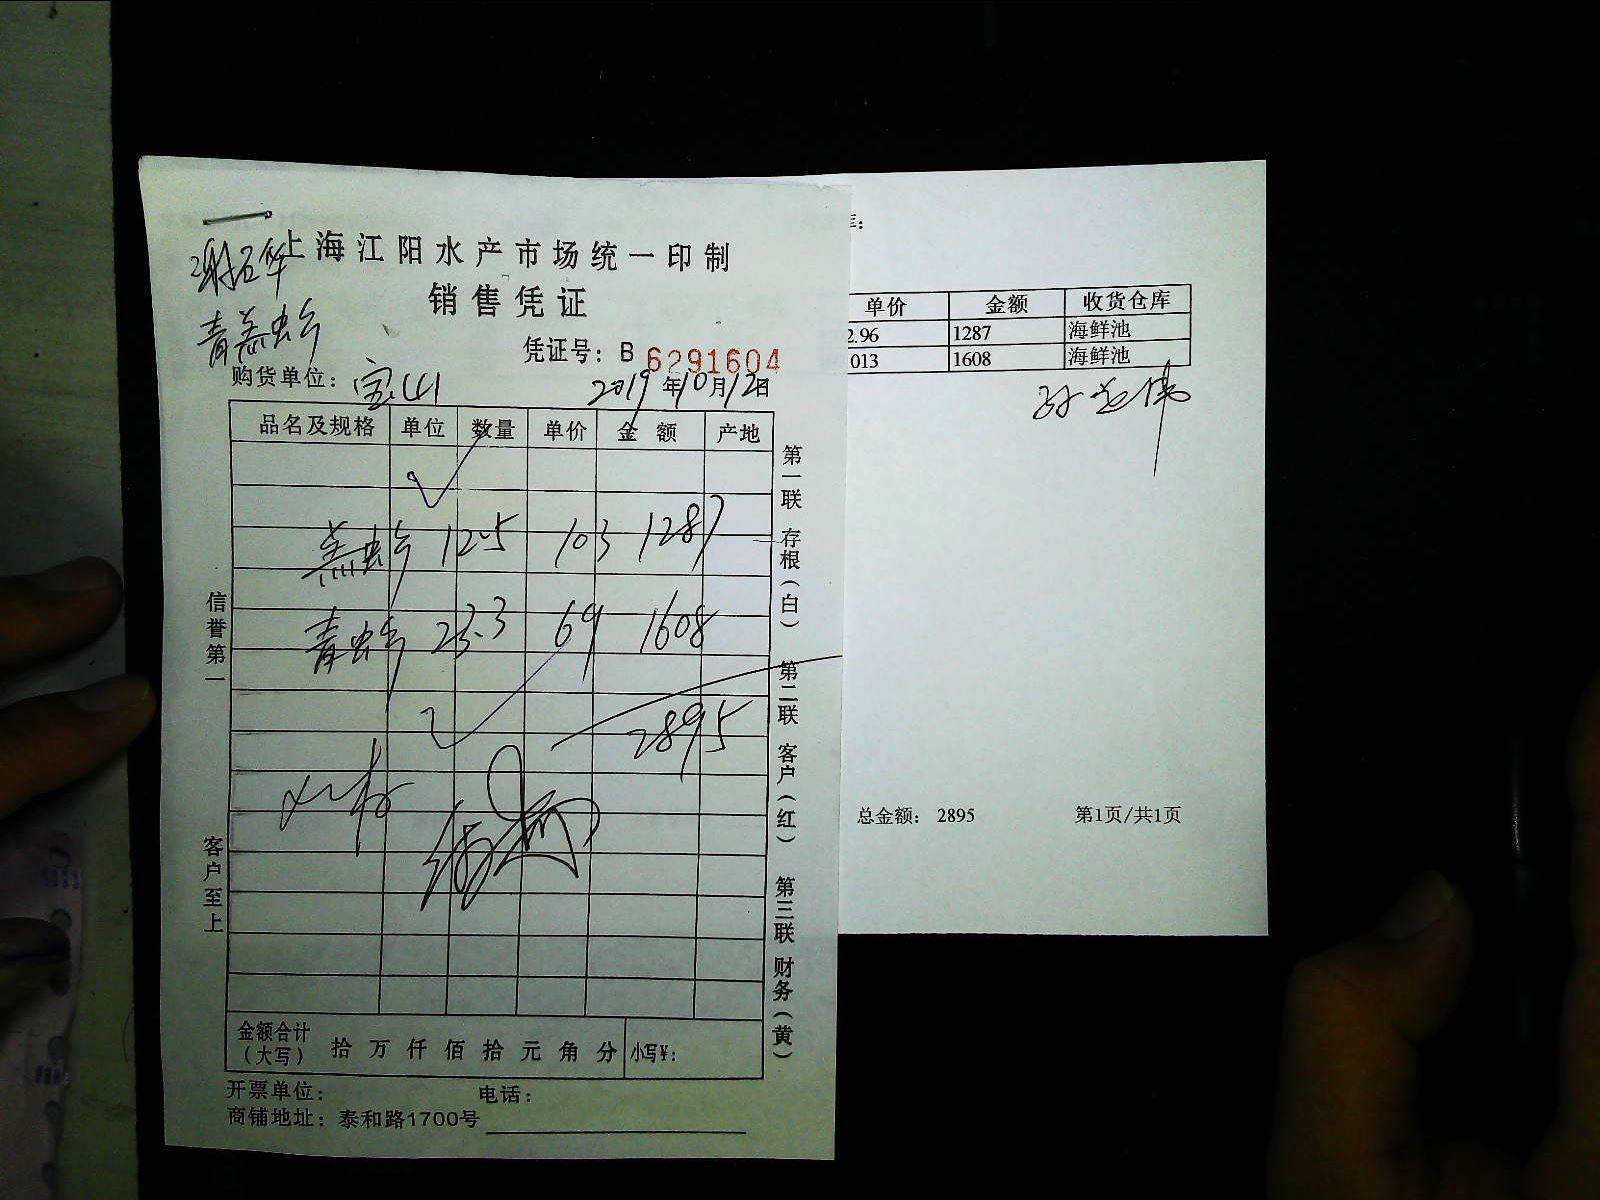 上海江阳水产市场统一印制
销售凭证
凭证号：B 6291604
购货单位：宝山
2019年10月12日
品名及规格 单位 数量 单价 金额 产地
12.5 103 1287
23.3 69 1608
2895
金额合计
（大写） 拾 万 仟 佰 拾 元 角 分 小写¥：
开票单位： 电话：
商铺地址：泰和路1700号
信誉第一
客户至上
第一联 存根（白） 第二联 客户（红） 第三联 财务（黄）
单价 金额 收货仓库
2.96 1287 海鲜池
013 1608 海鲜池
总金额： 2895 第1页/共1页